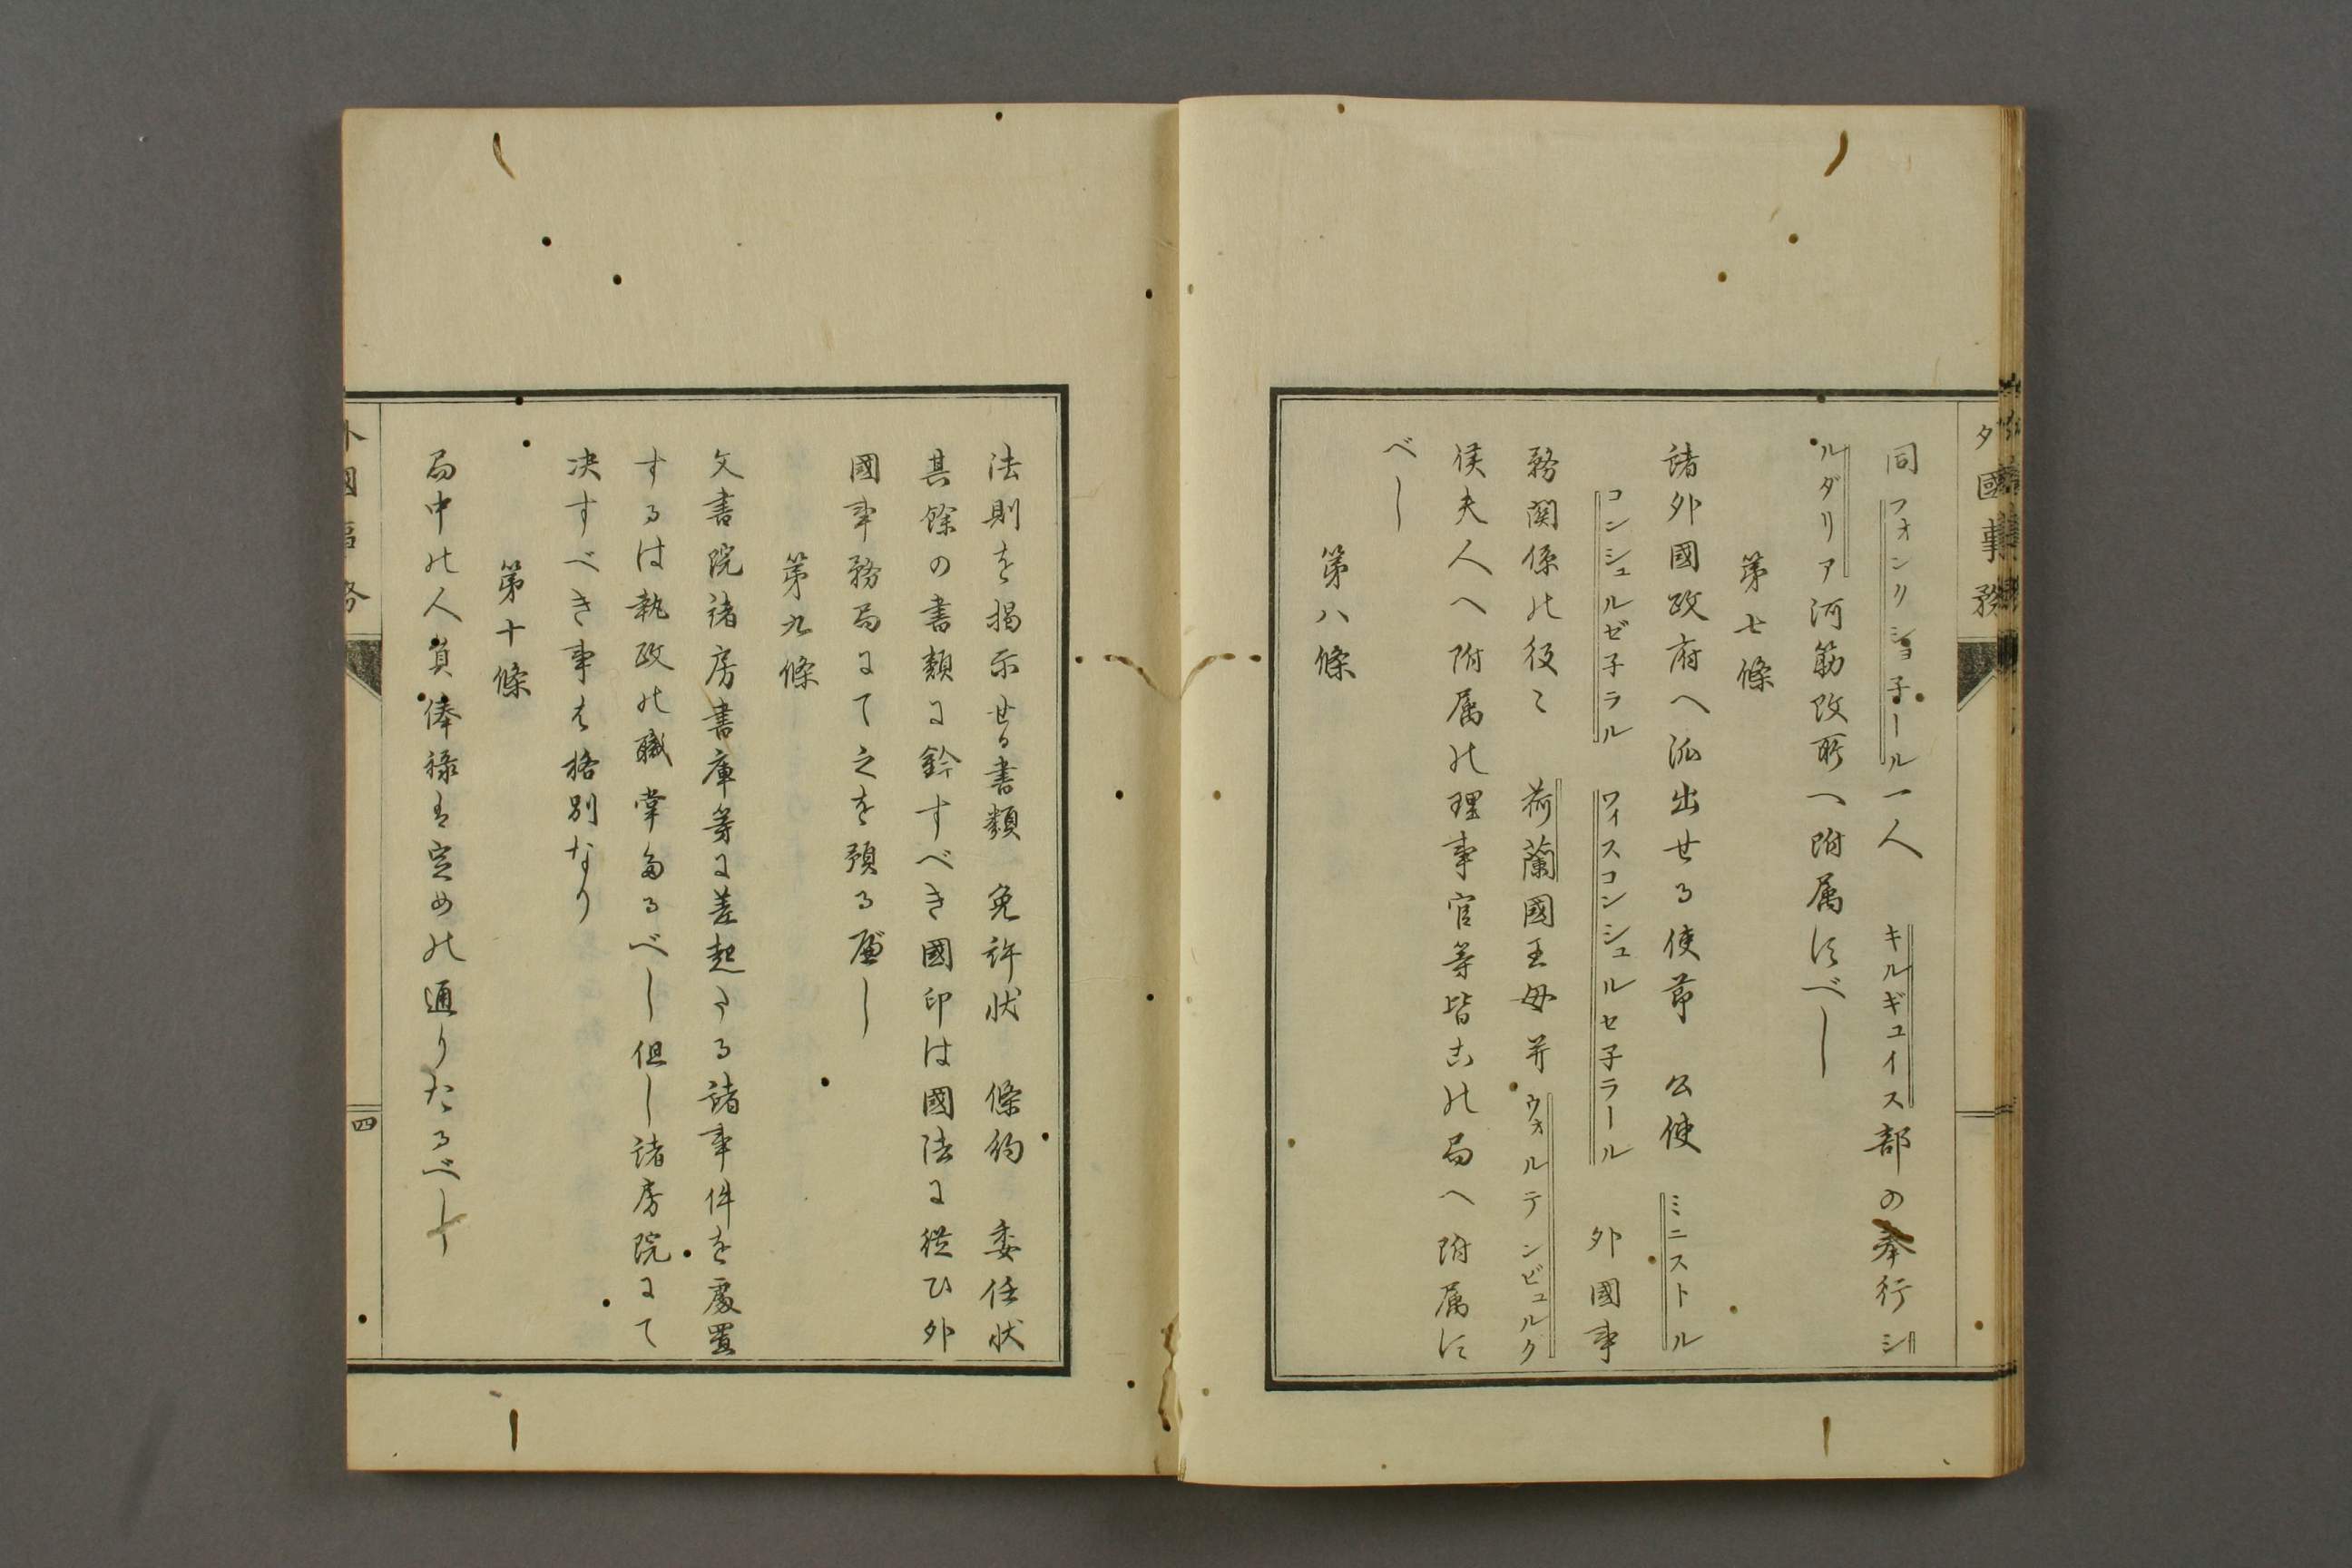 外國事務
同フォンクショ子ール一人　キルギュイス部の奉行シ
ルダリア河筋改所へ附属すべし
第七條
諸外國政府へ派出せる使節　公使　ミニストル
コンシュルゼ子ラル　ワィスコンシュルセ子ラール　外國事
務関係の役々　荷蘭國王母并ウォルテンビュルク
侯夫人へ附属の理事官等皆此の局へ附属す
べし
第八條
法則を揭示せる書類　免許状　條約　委任状
其餘の書類に鈐すべき國印は國法に従ひ外
國事務局にて之を預る遍し
第九條
文書院諸房書庫等に差起たる諸事件を處置
するは執政の職掌たるべし但し諸房院にて
决すべき事は格別なり
第十條
局中の人員俸禄は定めの通りたるべし
外國事務
四